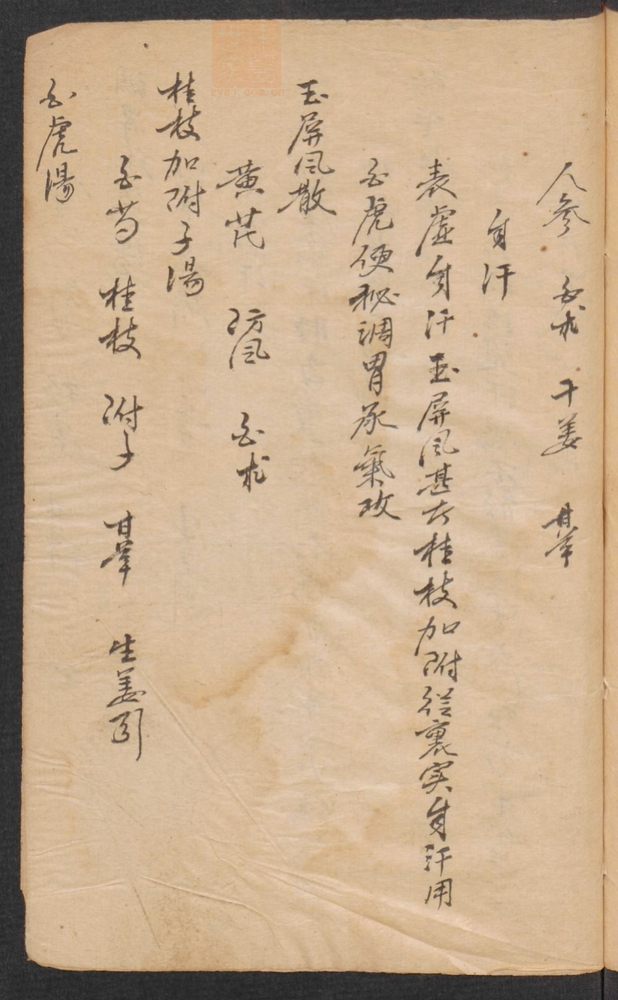 人參 白朮 干姜 甘草
自汗
表虛自汗玉屏风甚者桂枝加附從裏实自汗用
白虎便秘調胃承氣攻
玉屏风散
黄芪 防风 白朮
桂枝加附子湯
白芍 桂枝 附子 甘草 生姜引
白虎湯